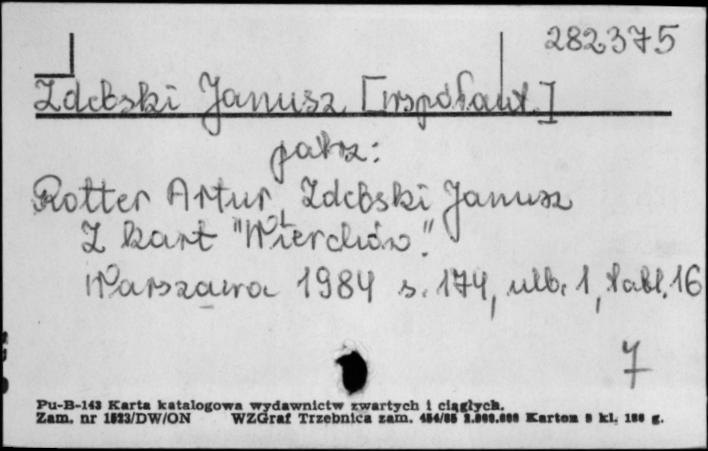 282375
Zdebski Janusz [współaut.]
patrz:
Rotter Artur, Zdebski Janusz
Z kart "Wierchów".
Warszawa 1984 s. 174, ulb. 1, tabl. 16
7
Pu-B-143 Karta katalogowa wydawnictw zwartych i ciągłych.
Zam. nr 1523/DW/ON WZGraf Trzebnica zam. Karton kl. g.